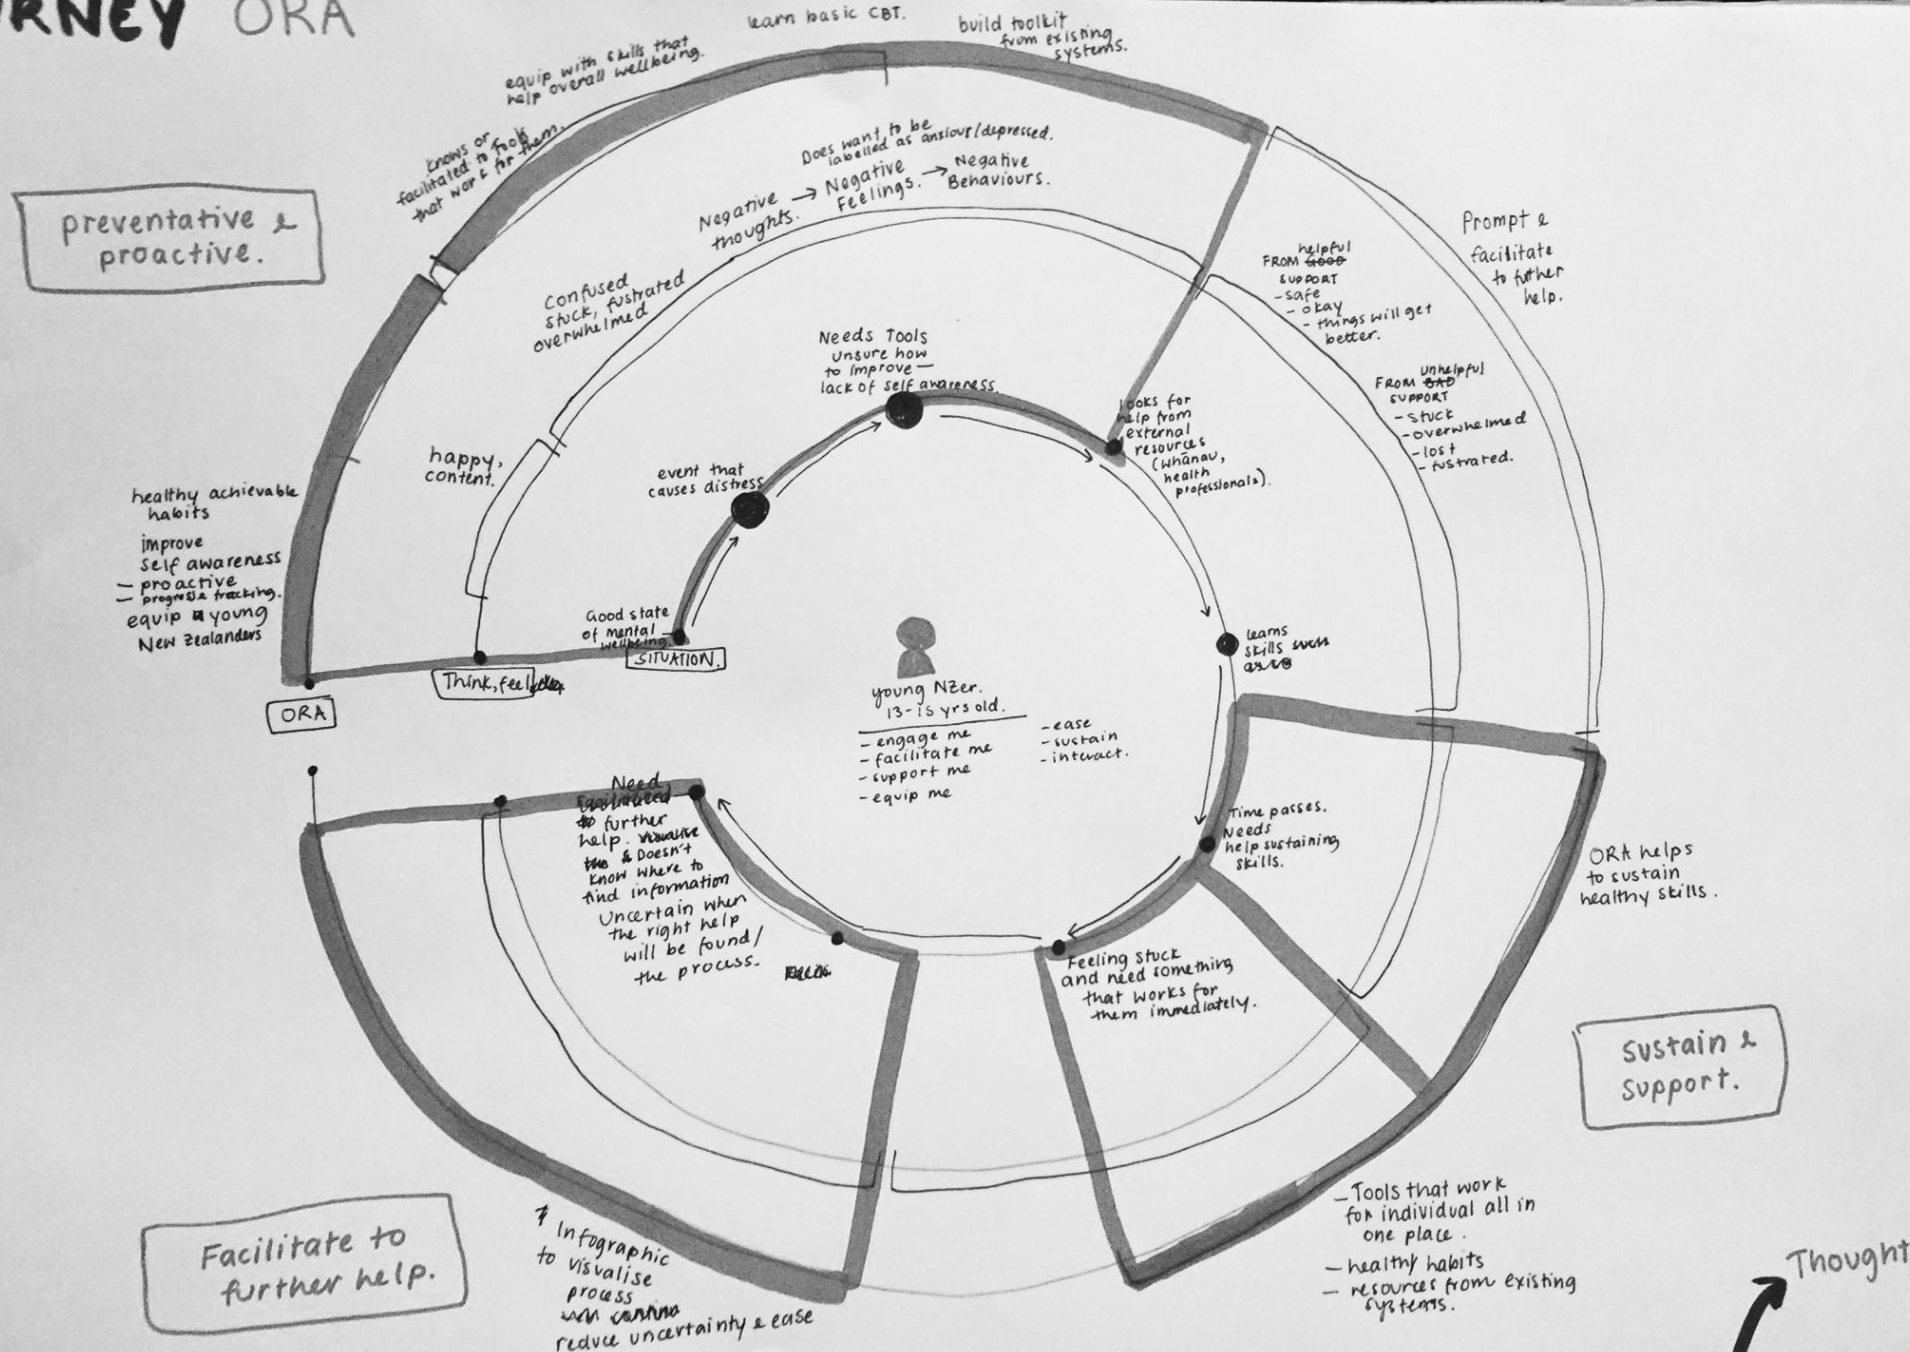 RNEY ORA
learn basic CBT.
build toolkit
from existing
systems.
equip with skills that
help overall wellbeing.
knows or
facilitated to tools
that work for them.
preventative &
proactive.
Does want to be
labelled as anxious/depressed.
Negative
thoughts.
→ Negative
Feelings.
→ Negative
Behaviours.
Confused
stuck, fustrated
overwhelmed
happy,
content.
healthy achievable
habits
improve
self awareness
- proactive
- progress tracking.
equip young
New Zealanders
Needs Tools
unsure how
to improve —
lack of self awareness
event that
causes distress
Good state
of mental
wellbeing.
SITUATION.
Think, feel
ORA
looks for
help from
external
resources
(whānau,
health
professionals).
helpful
FROM GOOD
SUPPORT
- safe
- okay
- things will get
better.
unhelpful
FROM BAD
SUPPORT
- stuck
- overwhelmed
- lost
- fustrated.
Prompt &
facilitate
to futher
help.
learns
skills
young NZer.
13-15 yrs old.
- engage me
- facilitate me
- support me
- equip me
- ease
- sustain
- interact.
Time passes.
Needs
help sustaining
skills.
ORA helps
to sustain
healthy skills.
Feeling stuck
and need something
that works for
them immediately.
sustain &
support.
- Tools that work
for individual all in
one place.
- healthy habits
- resources from existing
systems.
Need
further
help.
& Doesn't
know where to
find information
Uncertain when
the right help
will be found/
the process.
Facilitate to
further help.
Infographic
to visualise
process
reduce uncertainty & ease
Thought